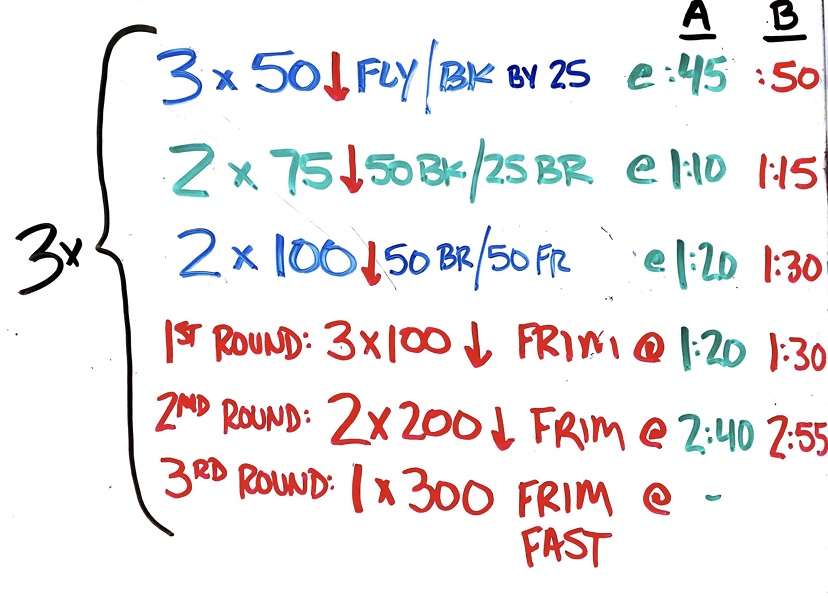 A B
3 x 50 ↓ FLY/BK BY 25 @ :45 :50
2 x 75 ↓ 50 BK/25 BR @ 1:10 1:15
3x
2 x 100 ↓ 50 BR/50 FR @ 1:20 1:30
1ST ROUND: 3 x 100 ↓ FRIM @ 1:20 1:30
2ND ROUND: 2 x 200 ↓ FRIM @ 2:40 2:55
3RD ROUND: 1 x 300 FRIM @ -
FAST